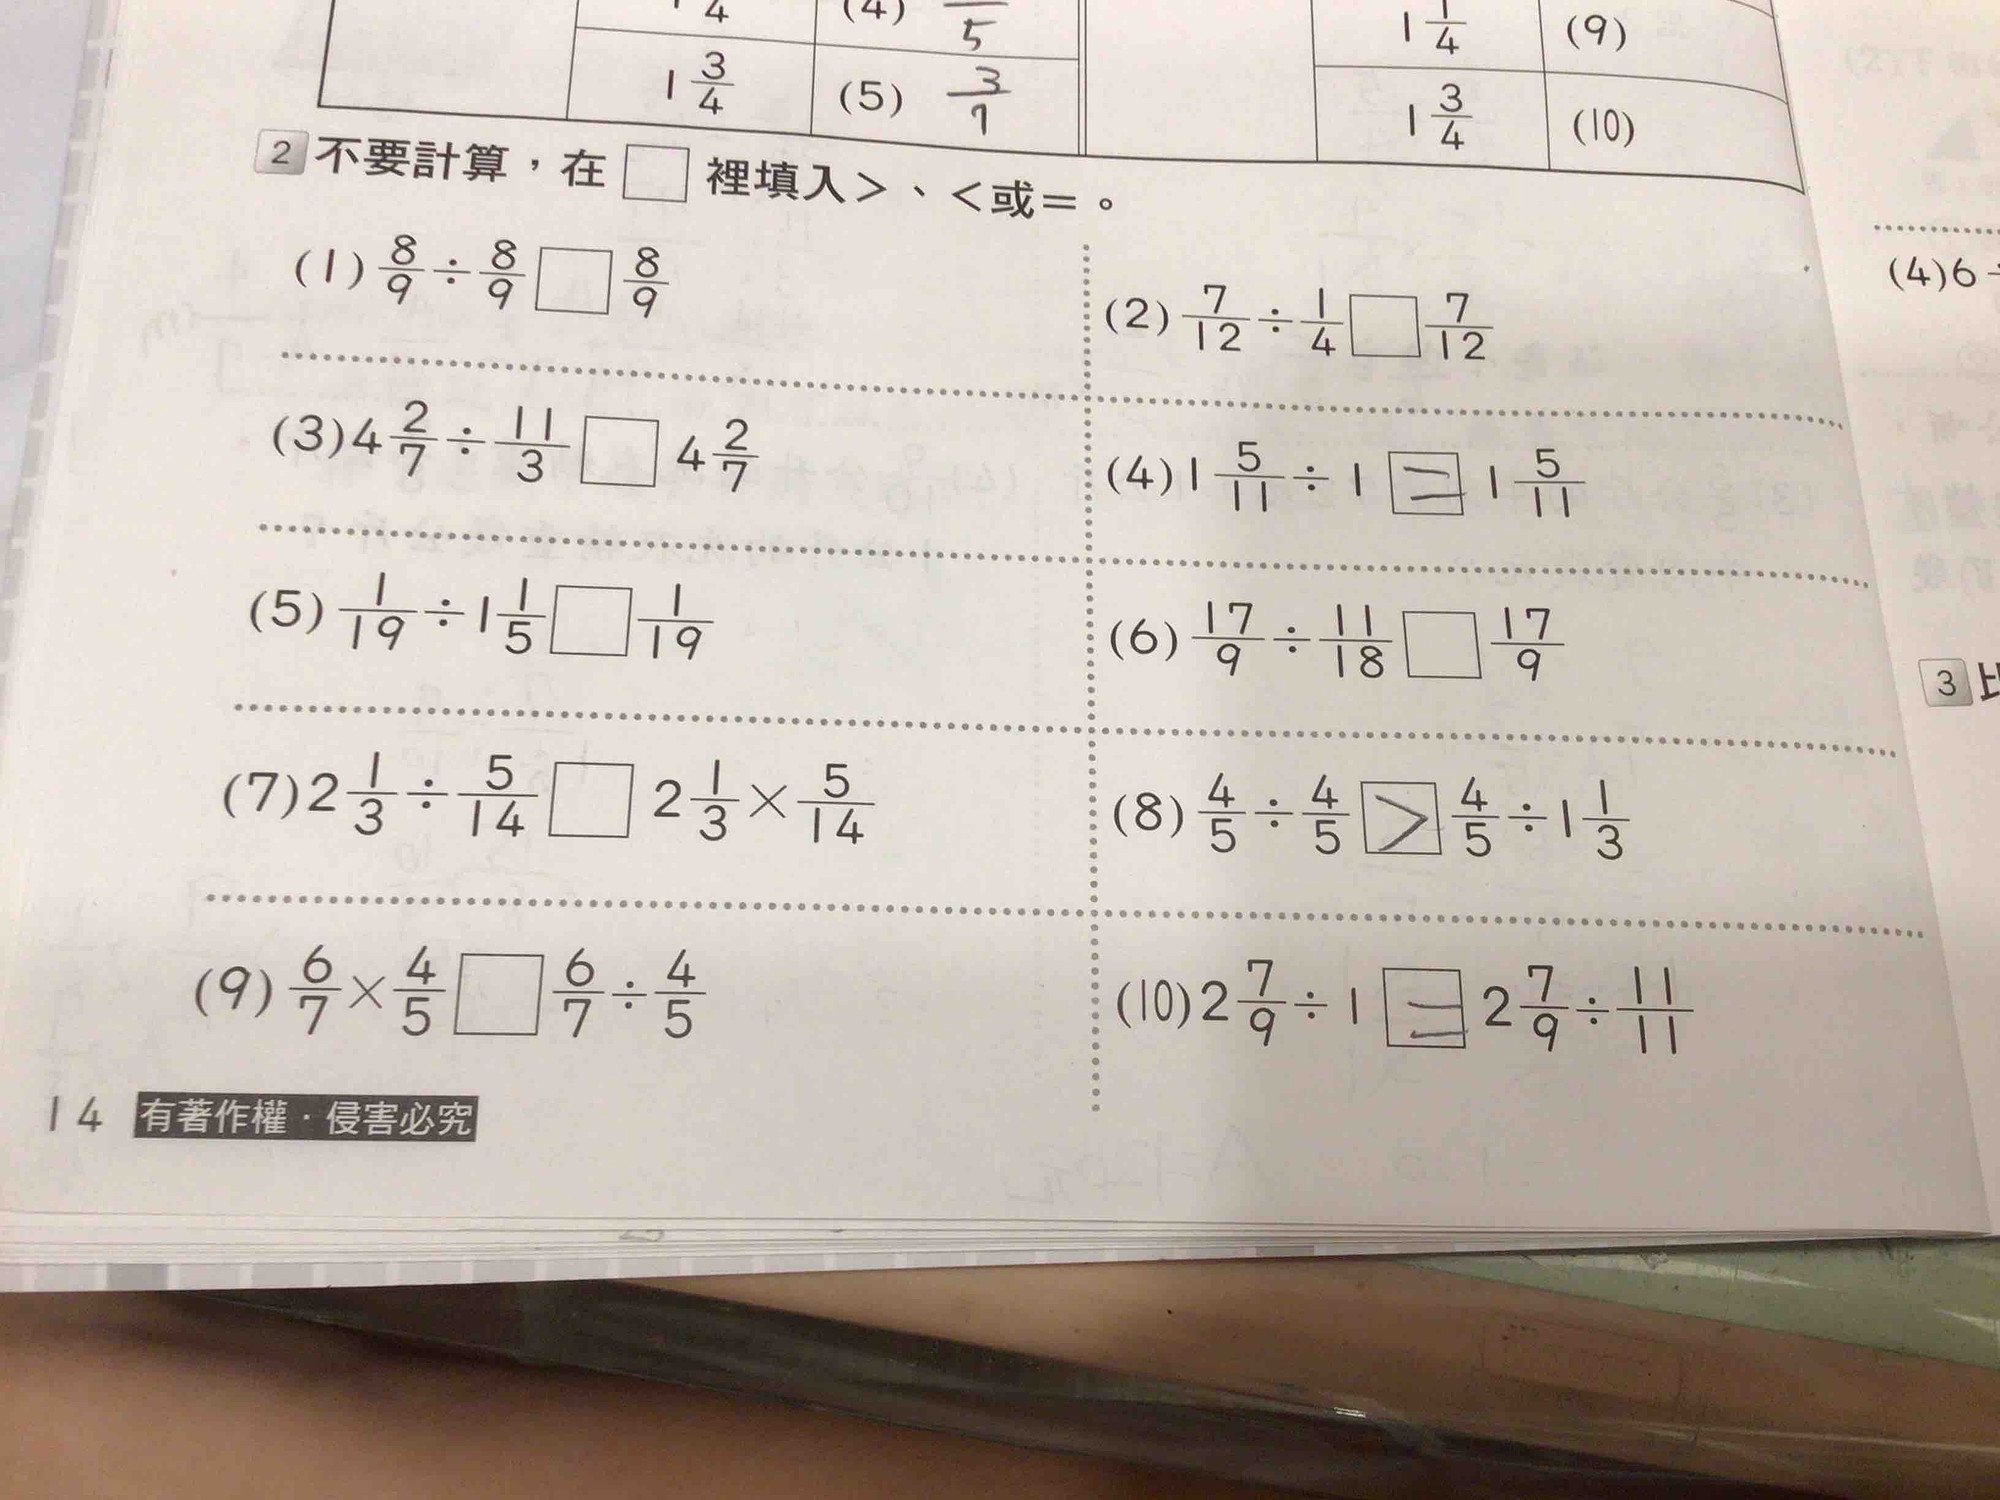 1 3/4 (5) 3/7 1 1/4 (9)
1 3/4 (10)
2 不要計算，在 □ 裡填入＞、＜或＝。
(1) 8/9 ÷ 8/9 □ 8/9
(2) 7/12 ÷ 1/4 □ 7/12
(3) 4 2/7 ÷ 11/3 □ 4 2/7
(4) 1 5/11 ÷ 1 = 1 5/11
(5) 1/19 ÷ 1 1/5 □ 1/19
(6) 17/9 ÷ 11/18 □ 17/9
(7) 2 1/3 ÷ 5/14 □ 2 1/3 × 5/14
(8) 4/5 ÷ 4/5 > 4/5 ÷ 1 1/3
(9) 6/7 × 4/5 □ 6/7 ÷ 4/5
(10) 2 7/9 ÷ 1 = 2 7/9 ÷ 11/11
14 有著作權·侵害必究
(4) 6 ÷
3 比